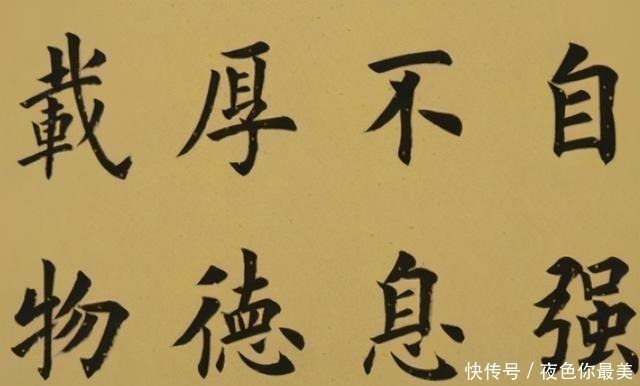 自强
不息
厚德
載物
快传号/夜色你最美